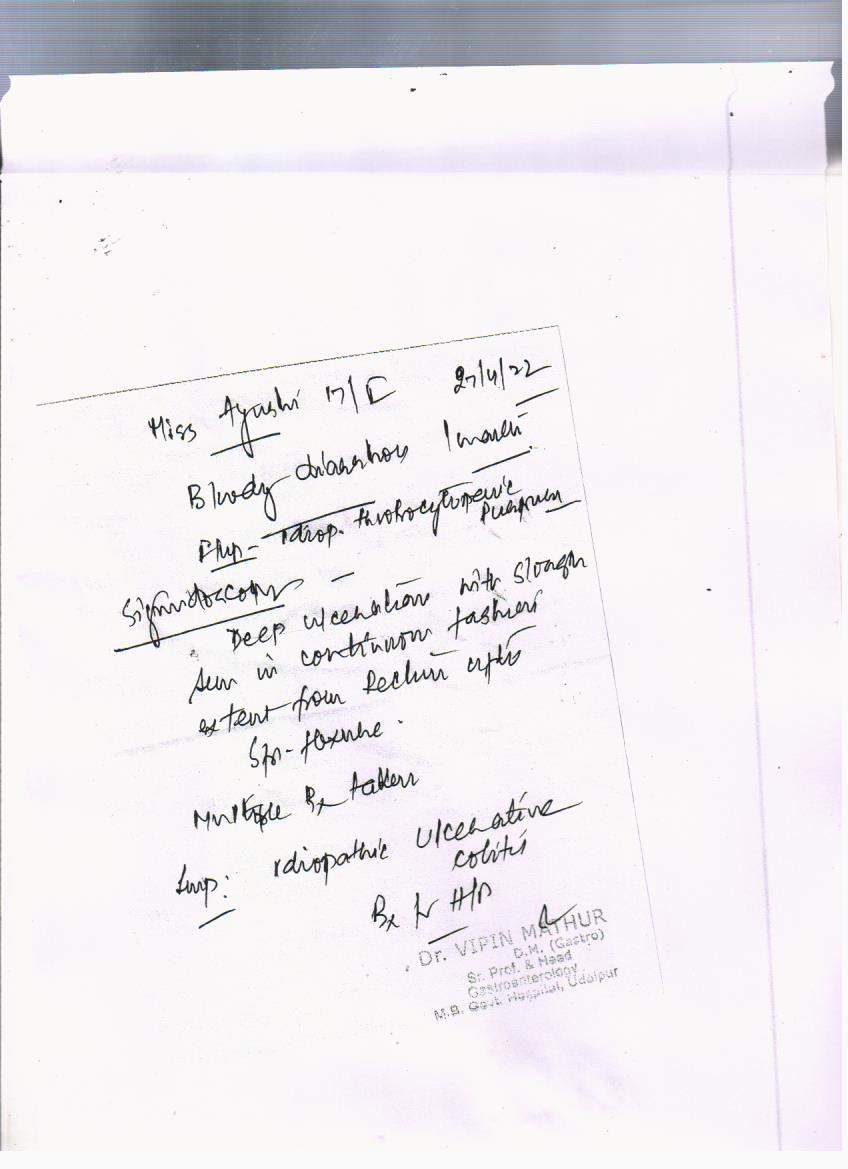 Miss Ayushi 17/F 27/4/22
Bloody diarrhoea 1 month.
Idiop. thrombocytopenic
Purpura
Sigmoidoscopy –
Deep ulceration with slough
seen in continuous fashion
extent from Rectum upto
Spl- flexure.
Multiple Bx taken
Imp: Idiopathic Ulcerative
colitis
Bx for H/P
Dr. VIPIN MATHUR
D.M. (Gastro)
Sr. Prof. & Head
Gastroenterology
M.B. Govt. Hospital, Udaipur